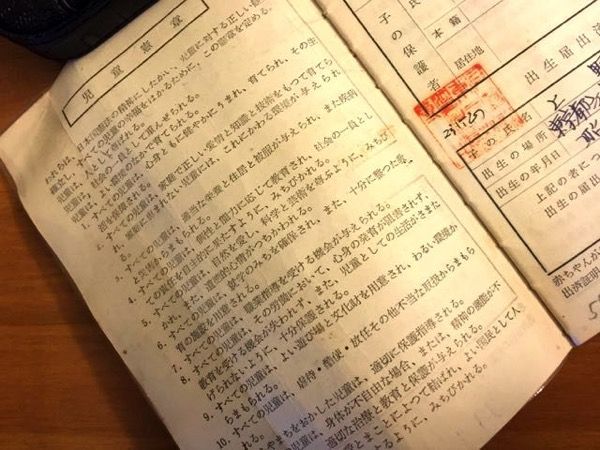 児童憲章
われらは、日本国憲法の精神にしたがい、児童に対する正しい
確立し、すべての児童の幸福をはかるために、この憲章を定める。
児童は、人として尊ばれる。
児童は、社会の一員として重んぜられる。
児童は、よい環境のなかで育てられる。
1. すべての児童は、心身ともに健やかにうまれ、育てられ、その生
活を保障される。
すべての児童は、家庭で正しい愛情と知識と技術をもつて育てら
れ、家庭に恵まれない児童には、これにかわる環境が与えられ
すべての児童は、適当な栄養と住居と被服が与えられ、また疾病
と災害からまもられる。
4. すべての児童は、個性と能力に応じて教育され、社会の一員とし
ての責任を自主的に果たすように、みちびかれる。
5. すべての児童は、自然を愛し、科学と芸術を尊ぶように、みちび
かれ、また、道徳的心情がつちかわれる。
6. すべての児童は、就学のみちを確保され、また、十分に整つた教
育の施設を用意される。
7. すべての児童は、職業指導を受ける機会が与えられる。
8. すべての児童は、その労働において、心身の発育が阻害されず、
教育を受ける機会が失われず、また、児童としての生活がさまた
げられないように、十分保護される。
9. すべての児童は、よい遊び場と文化財を用意され、わるい環境か
らまもられる。
10. すべての児童は、虐待・酷使・放任その他不当な取扱からまもら
れる。
あやまちをおかした児童は、適切に保護指導される。
すべての児童は、身体が不自由な場合、または、精神の機能が不
適切な治療と教育と保護が与えられる。
愛とまことによつて結ばれ、よい国民として人
みちびかれる。
子の保護者
氏
本籍
居住地
出生届出済
子の氏名
上
出生の場所
東京都
出生の年月日
上記の者につ
出生の届出
赤ちゃんが
出済証明